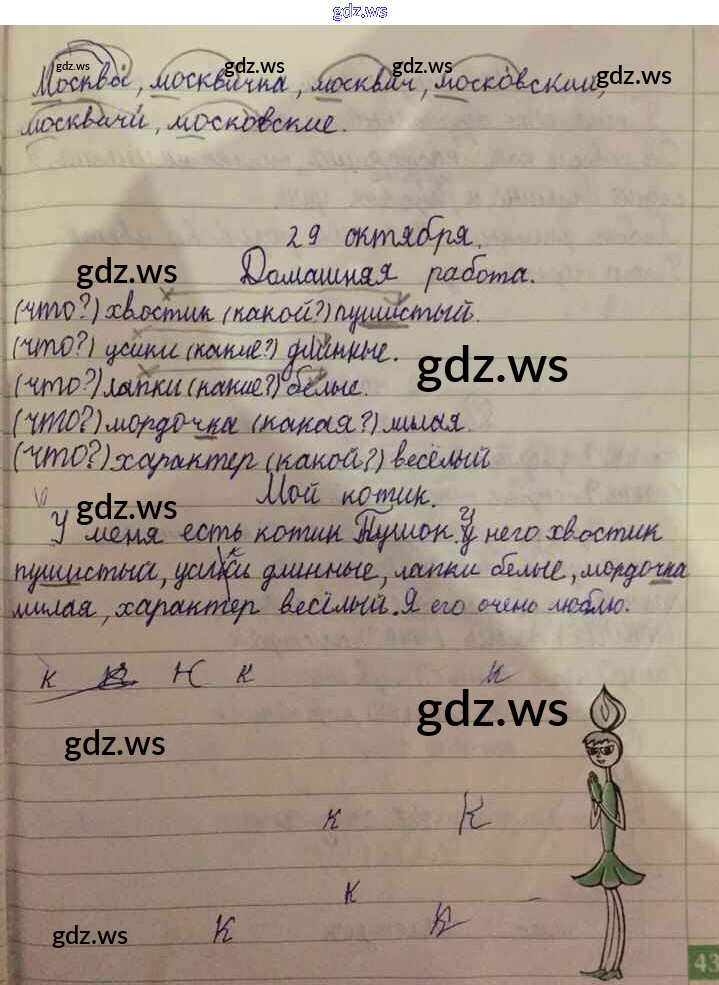 gdz.ws
Москвы, москвичка, москвич, московский,
москвичи, московские.
29 октября.
Домашняя работа.
(что?) хвостик (какой?) пушистый.
(что?) усики (какие?) длинные.
(что?) лапки (какие?) белые.
(что?) мордочка (какая?) милая.
(что?) характер (какой?) весёлый
Мой котик.
У меня есть котик Пушок. У него хвостик
пушистый, усики длинные, лапки белые, мордочка
милая, характер весёлый. Я его очень люблю.
к н к к
к К
к
К К
43
gdz.ws
gdz.ws
gdz.ws
gdz.ws
gdz.ws
gdz.ws
gdz.ws
gdz.ws
gdz.ws
gdz.ws
gdz.ws
gdz.ws